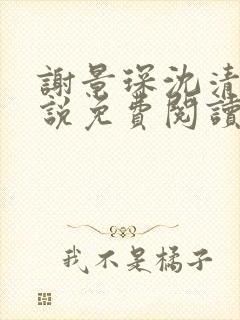 謝景琛沈清
說免費閱讀
我不是橘子